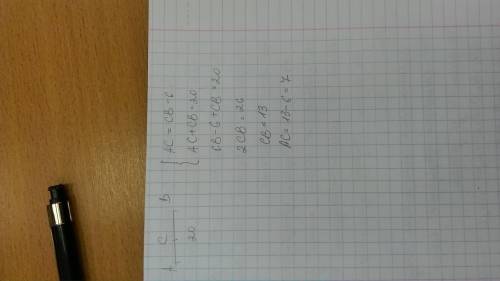 A C B
20
{ AC = CB - 6
AC + CB = 20
CB - 6 + CB = 20
2CB = 26
CB = 13
AC = 13 - 6 = 7